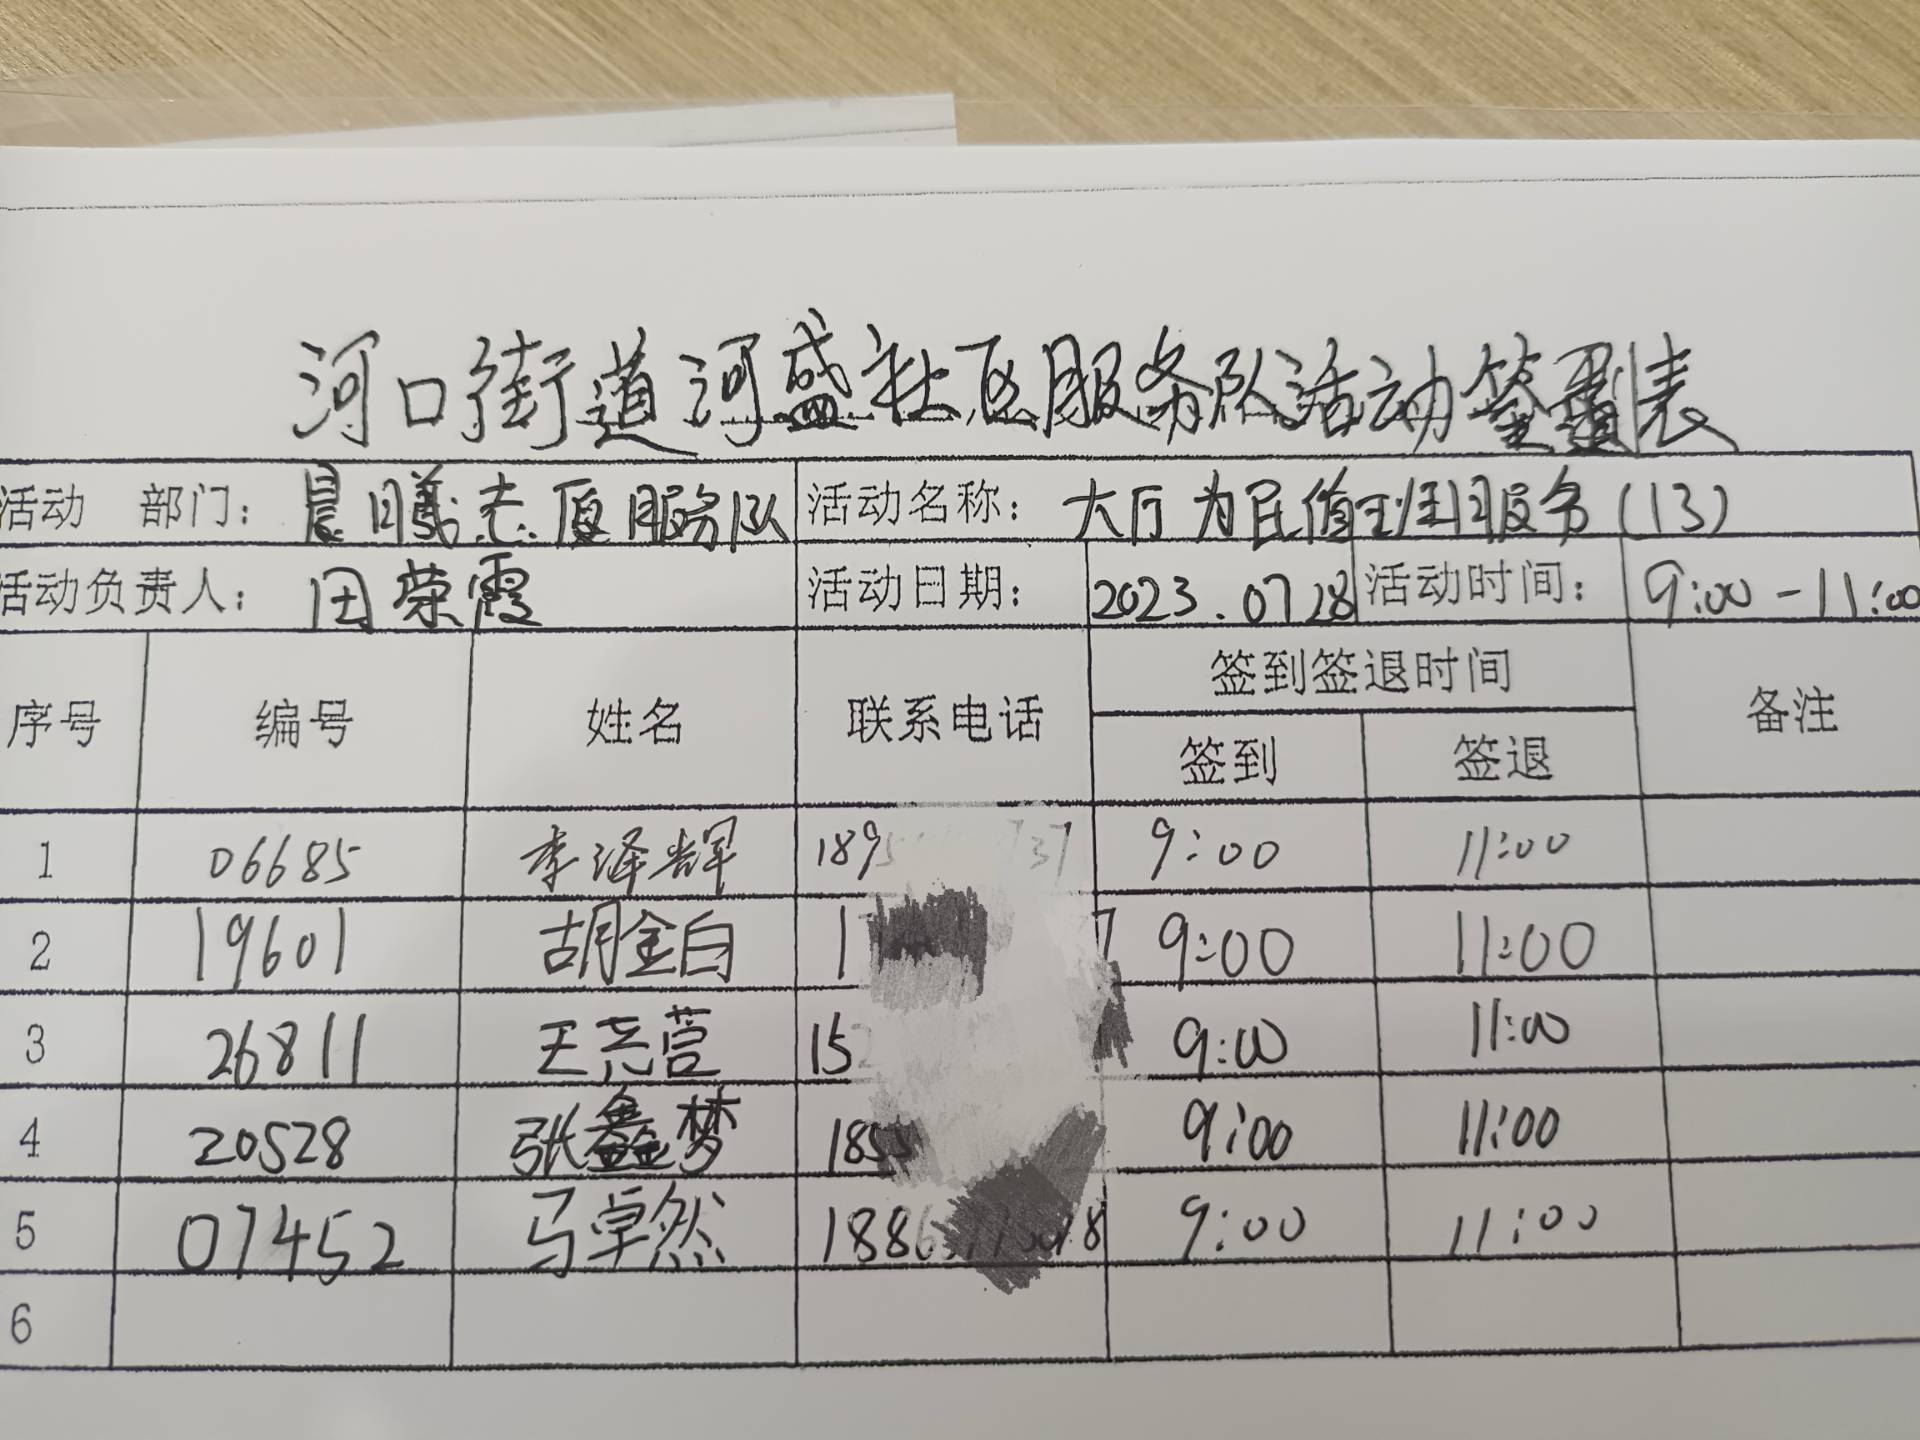 河口街道河盛社区服务队活动签到表
活动 部门: 晨曦志愿服务队 活动名称: 大厅为民值班服务(13)
活动负责人: 田荣霞 活动日期: 2023.0728 活动时间: 9:00-11:00
序号 编号 姓名 联系电话 签到签退时间 备注
签到 签退
1 06685 李泽辉 189 737 9:00 11:00
2 19601 胡金白 1 7 9:00 11:00
3 26811 王尧营 15 9:00 11:00
4 20528 张鑫梦 185 9:00 11:00
5 07452 马卓然 188 8 9:00 11:00
6